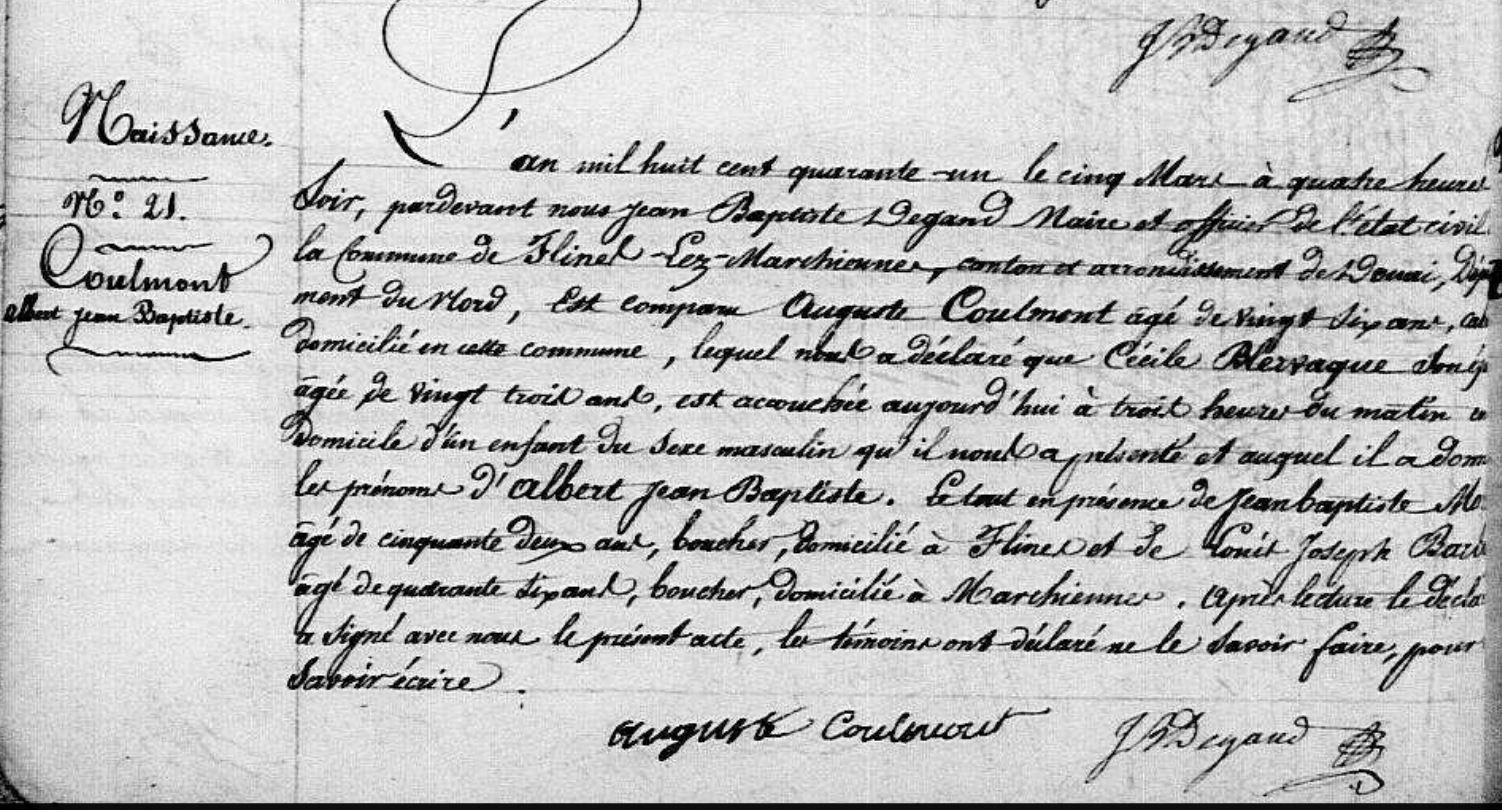 JBDegand
Naissance.
N.° 21.
Coulmont
albert jean Baptiste.
L'an mil huit cent quarante-un le cinq Mars à quatre heures
soir, pardevant nous jean Baptiste Degand Maire et officier de l'état civil
la Commune de Flines-Lez-Marchiennes, canton et arrondissement de Douai, Dép
ment du Nord, Est comparu Auguste Coulmont âgé de vingt six ans, ca
domicilié en cette commune, lequel nous a déclaré que Cécile Blervaque son ép
âgée de vingt trois ans, est accouchée aujourd'hui à trois heures du matin
Domicile d'un enfant du sexe masculin qu'il nous a présenté et auquel il a donn
les prénoms d'albert jean Baptiste. Le tout en présence de jean baptiste
âgé de cinquante deux ans, boucher, domicilié à Flines et de Louis Joseph
âgé de quarante six ans, boucher, domicilié à Marchiennes. Après lecture le décla
a signé avec nous le présent acte, les témoins ont déclaré ne le savoir faire, pour
savoir écrire.
auguste Coulmont JBDegand